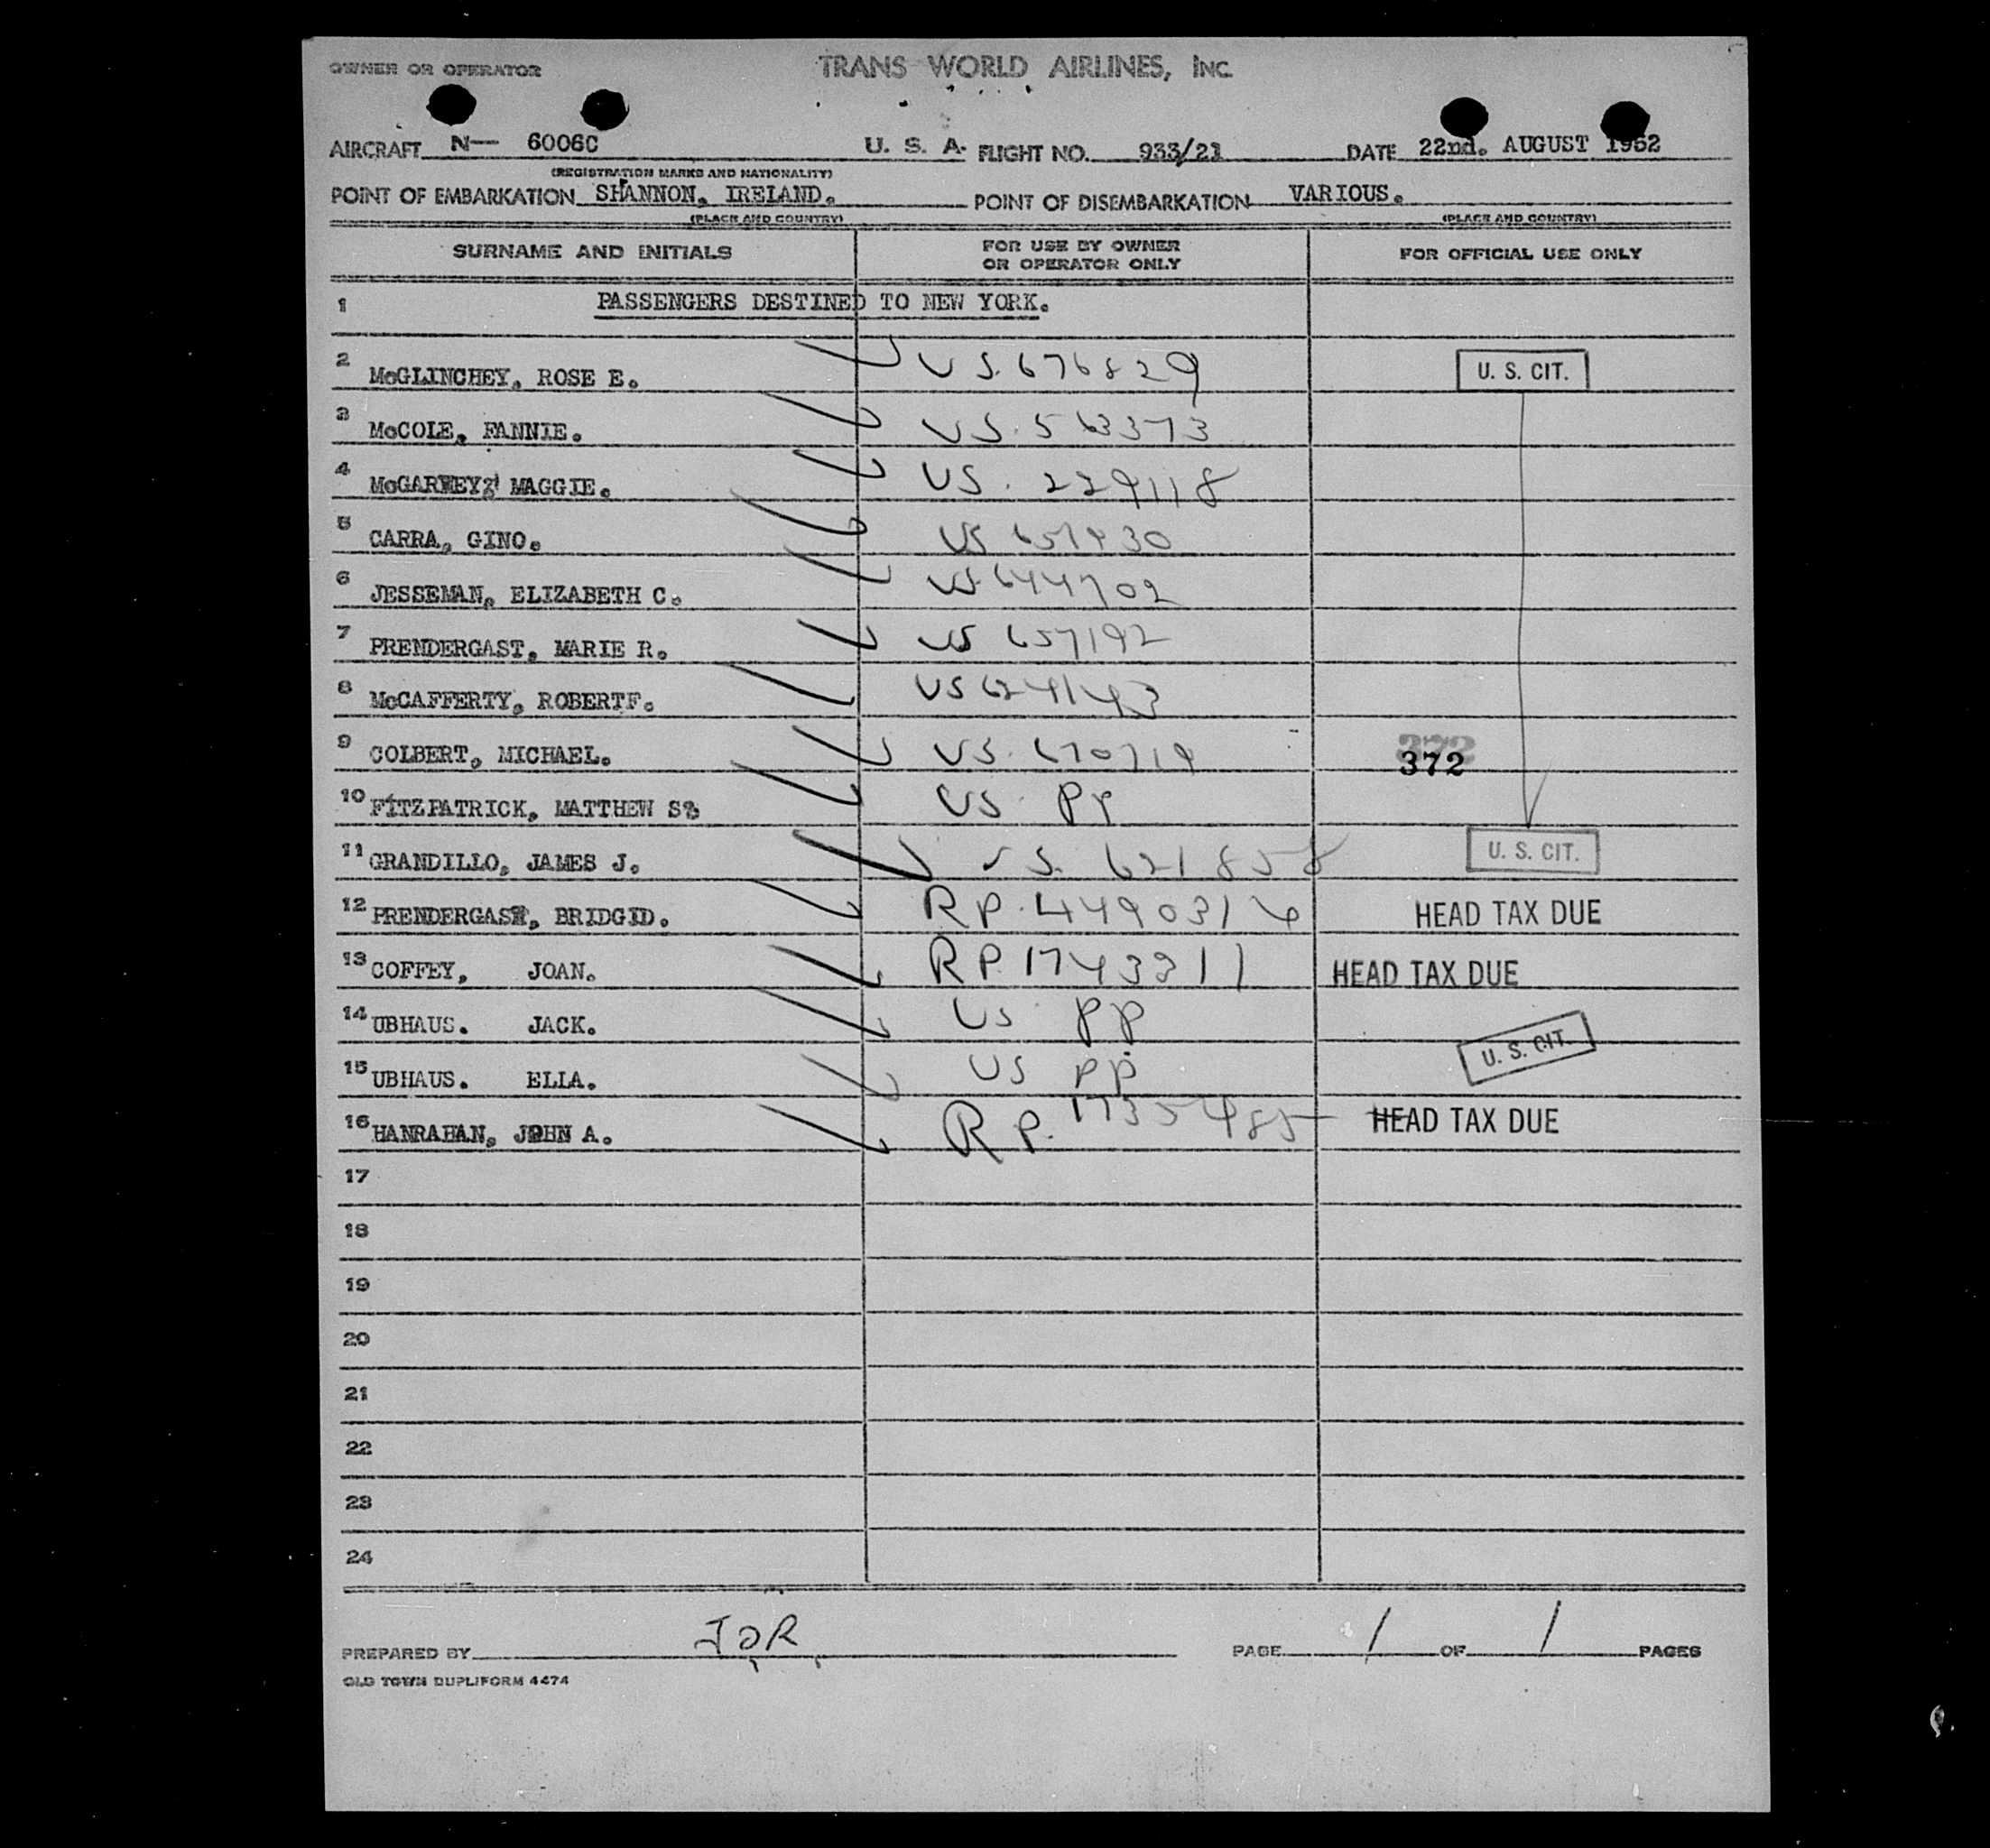 OWNER OR OPERATOR TRANS WORLD AIRLINES, INC.
AIRCRAFT N— 6006C U. S. A. FLIGHT NO. 933/21 DATE 22nd. AUGUST 1952
(REGISTRATION MARKS AND NATIONALITY)
POINT OF EMBARKATION SHANNON, IRELAND. POINT OF DISEMBARKATION VARIOUS.
(PLACE AND COUNTRY) (PLACE AND COUNTRY)
SURNAME AND INITIALS FOR USE BY OWNER OR OPERATOR ONLY FOR OFFICIAL USE ONLY
1 PASSENGERS DESTINED TO NEW YORK.
2 McGLINCHEY, ROSE E. US. 676829 U. S. CIT.
3 McCOLE, FANNIE. US. 563373
4 McGARVEY, MAGGIE. US. 229118
5 CARRA, GINO. US 657930
6 JESSEMAN, ELIZABETH C. US. 644702
7 PRENDERGAST, MARIE R. US 657192
8 McCAFFERTY, ROBERTF. US 624143
9 COLBERT, MICHAEL. US. 670719 372
10 FITZPATRICK, MATTHEW S. US. PP
11 GRANDILLO, JAMES J. US. 621858 U. S. CIT.
12 PRENDERGAST, BRIDGID. RP. 4490316 HEAD TAX DUE
13 COFFEY, JOAN. RP. 1743311 HEAD TAX DUE
14 UBHAUS. JACK. US PP
15 UBHAUS. ELLA. US PP U. S. CIT.
16 HANRAHAN, JOHN A. RP. 1735485 HEAD TAX DUE
17
18
19
20
21
22
23
24
PREPARED BY JOR PAGE 1 OF 1 PAGES
OLD TOWN DUPLIFORM 4474